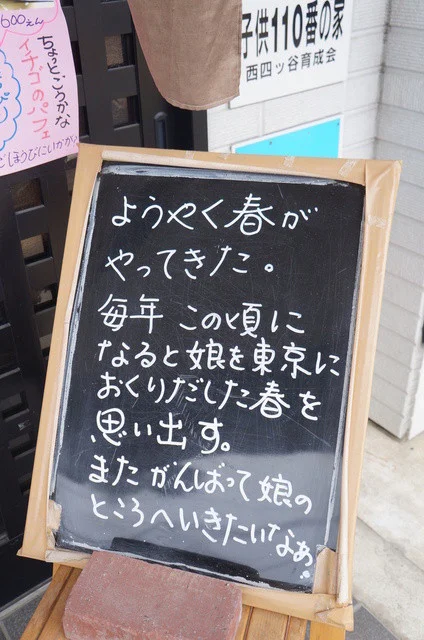 600えん
ちょっとこうかな
イチゴのパフェ
ごほうびにいかが
子供110番の家
西四ッ谷育成会
ようやく春が
やってきた。
毎年 この頃に
なると娘を東京に
おくりだした春を
思い出す。
またがんばって娘の
ところへいきたいなぁ。